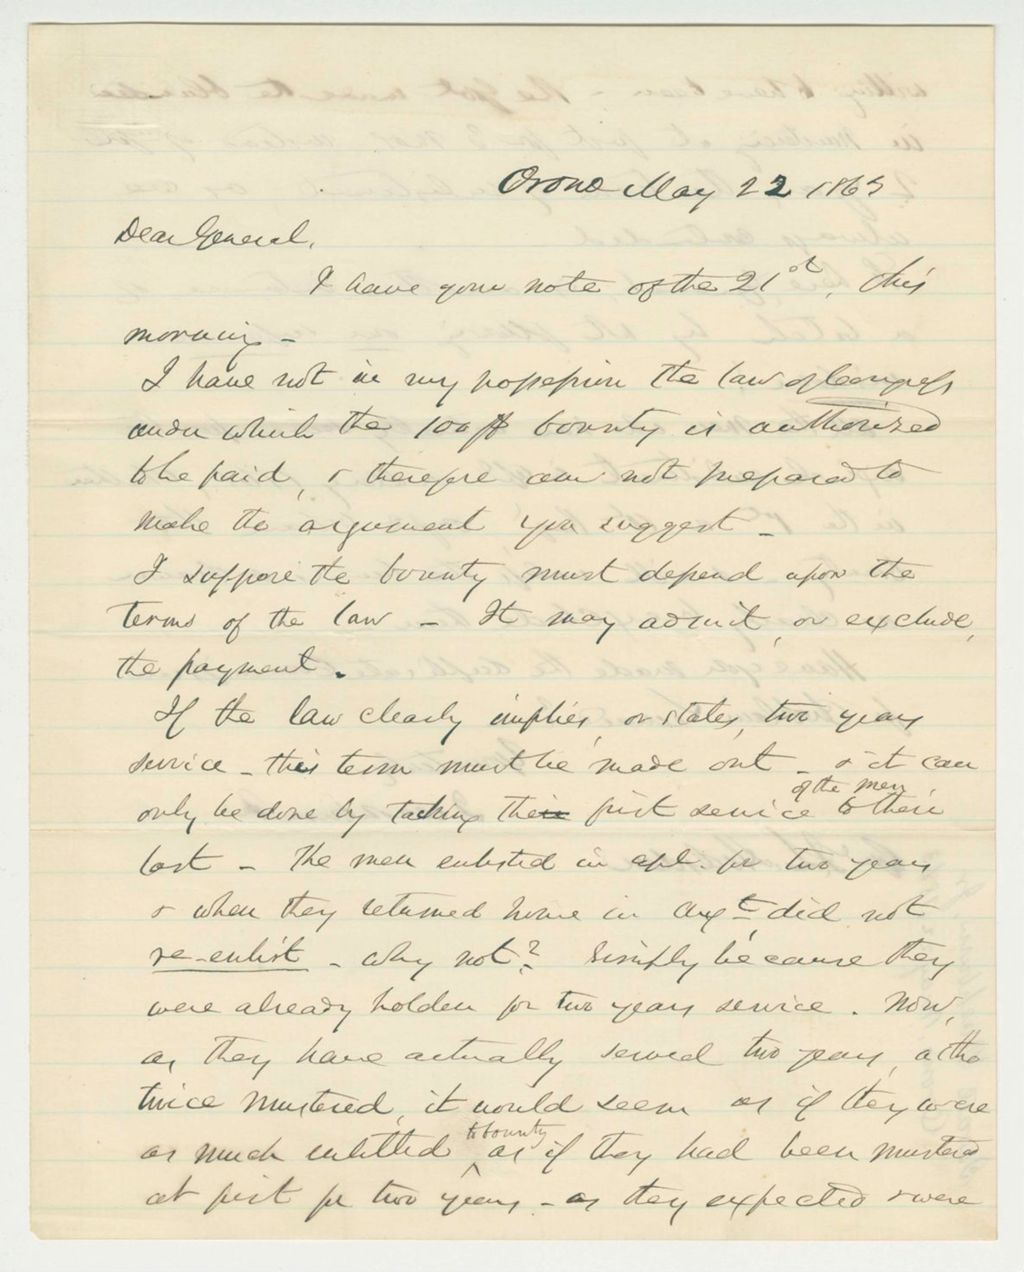 Orono May 22 1863
Dear General,
I have your note of the 21st, this
morning -
I have not in my possession the law of Congress
under which the 100$ bounty is authorized
to be paid, & therefore am not prepared to
make the argument you suggest -
I suppose the bounty must depend upon the
terms of the law - It may admit, or exclude,
the payment.
If the law clearly implies, or states, two years
service - this term must be made out - & it can
only be done by taking their first service of the men to their
last - The men enlisted in apl. for two years
& when they returned home in Augt did not
re-enlist - Why not? Simply because they
were already holden for two years service. Now,
as they have actually served two years, altho
twice mustered, it would seem as if they were
as much entitled to bounty as if they had been mustered
at first for two years - as they expected & were